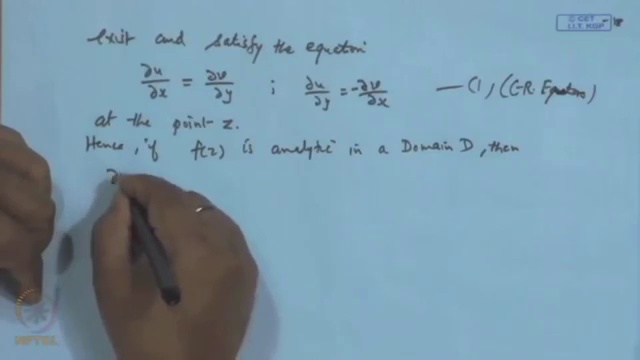 exist and satisfy the equation
∂u/∂x = ∂v/∂y ; ∂u/∂y = -∂v/∂x — (1) (C-R. Equations)
at the point z.
Hence, if f(z) is analytic in a Domain D, then
∂
© CET
I.I.T. KGP
NPTEL